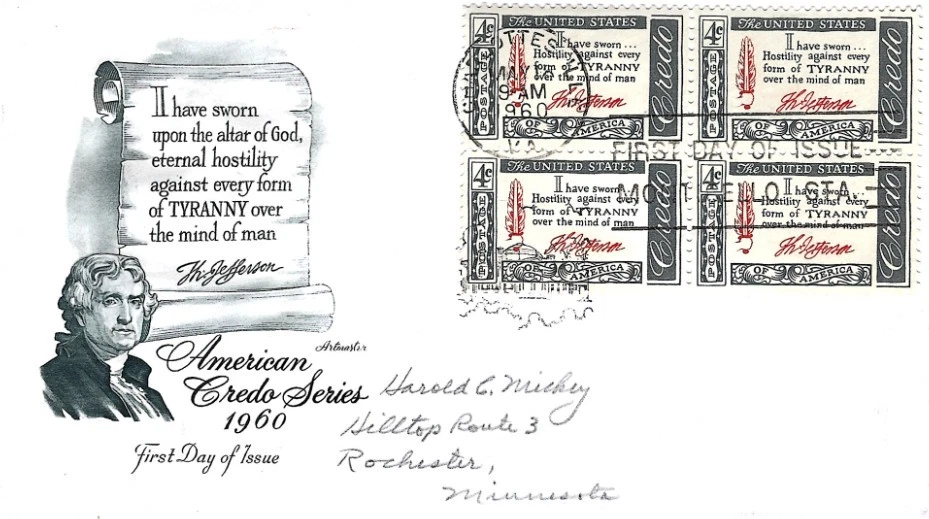 I have sworn
upon the altar of God,
eternal hostility
against every form
of TYRANNY over
the mind of man
Th: Jefferson
Artmaster
American
Credo Series
1960
First Day of Issue
4c
The UNITED STATES
POSTAGE
I have sworn...
Hostility against every
form of TYRANNY
over the mind of man
Th Jefferson
Credo
OF AMERICA
4c
The UNITED STATES
POSTAGE
I have sworn...
Hostility against every
form of TYRANNY
over the mind of man
Th Jefferson
Credo
OF AMERICA
MAY
9-AM
1960
VA.
FIRST DAY OF ISSUE
STA.
4c
The UNITED STATES
POSTAGE
I have sworn...
Hostility against every
form of TYRANNY
over the mind of man
Th Jefferson
Credo
OF AMERICA
4c
The UNITED STATES
POSTAGE
I have sworn...
Hostility against every
form of TYRANNY
over the mind of man
Th Jefferson
Credo
OF AMERICA
Harold C. Mickey
Hilltop Route 3
Rochester,
Minnesota